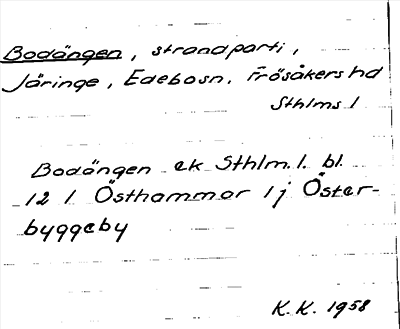 Bodängen, strandparti,
Järinge, Edebosn. Frösåkers hd
Sthlms l
Bodängen ek Sthlm. l. bl.
12 l Östhammar 1 j Öster-
byggeby
K.K. 1958